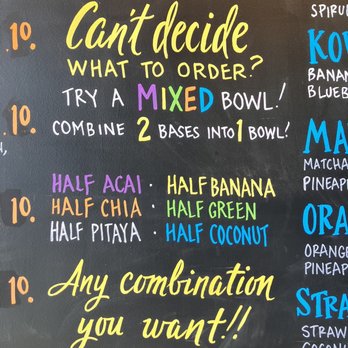 Can't decide
WHAT TO ORDER?
TRY A MIXED BOWL!
COMBINE 2 BASES INTO 1 BOWL!
HALF ACAI · HALF BANANA
HALF CHIA · HALF GREEN
HALF PITAYA · HALF COCONUT
Any combination
you want!!
10.
10.
10.
10.
SPIRU
KO
BANAN
BLUEB
MA
MATCHA
PINEAP
ORA
ORANGE
PINEAP
STRA
STRAW